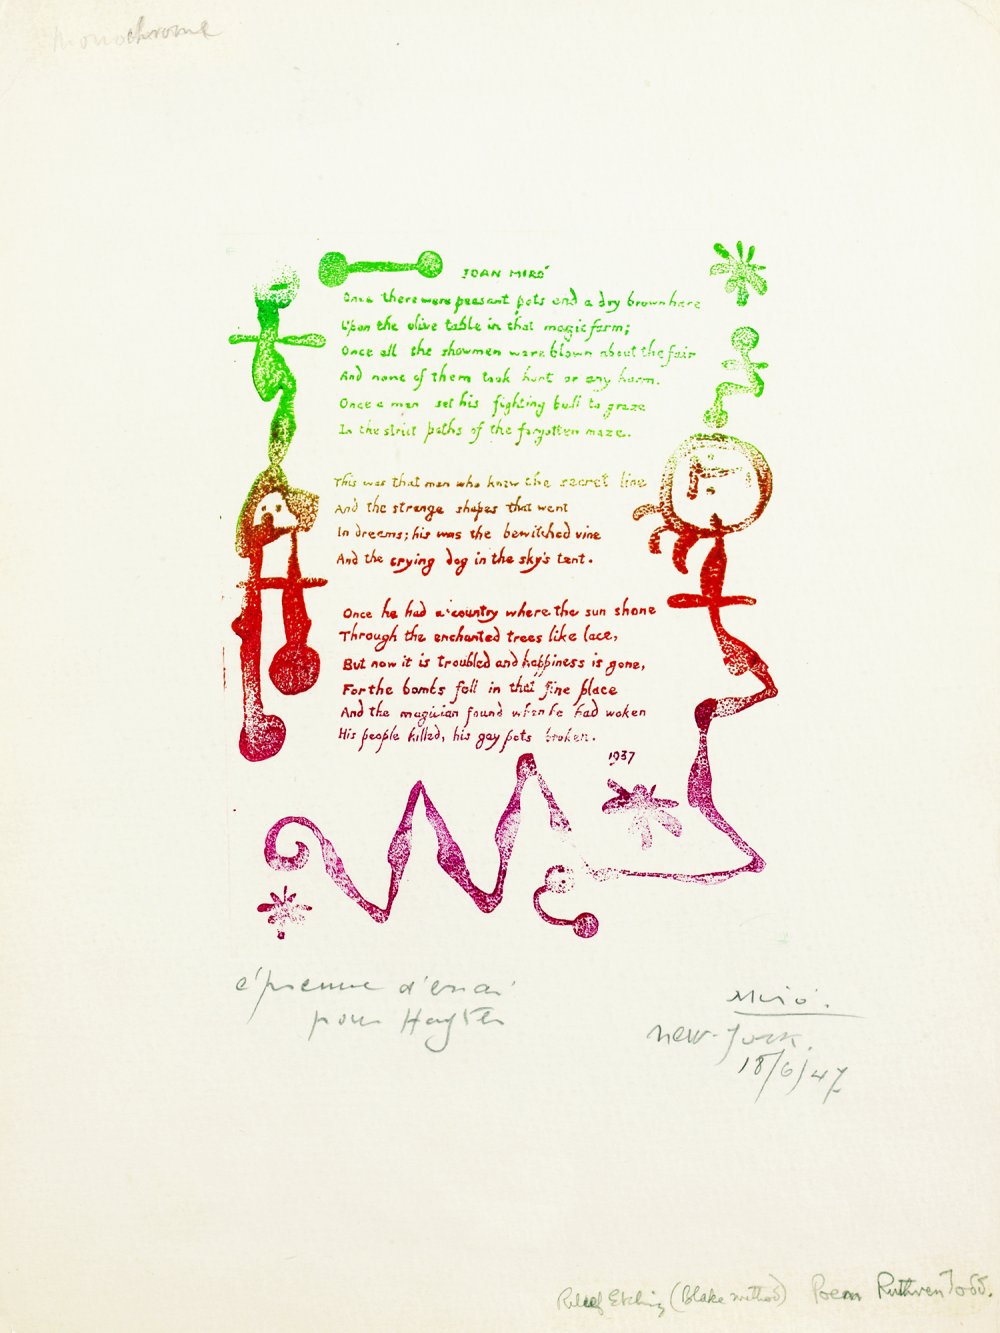 Monochrome
JOAN MIRÓ
Once there were peasant pots and a dry brown hare
Upon the olive table in that magic farm;
Once all the showmen were blown about the fair
And none of them took hurt or any harm.
Once a man set his fighting bull to graze
In the strict paths of the forgotten maze.
This was that man who knew the secret line
And the strange shapes that went
In dreams; his was the bewitched vine
And the crying dog in the sky's tent.
Once he had a country where the sun shone
Through the enchanted trees like lace,
But now it is troubled and happiness is gone,
For the bombs fell in that fine place
And the magician found when he had woken
His people killed, his gay pots broken.
1937
épreuve d'essai
pour Hayter
Miró.
New-York.
18/6/47
Relief Etching (Blake method) Poem Ruthven Todd.